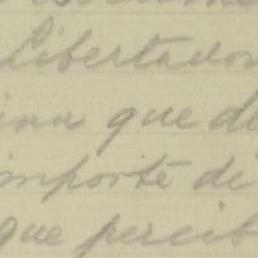 Libertador
que de
importe de
que percib